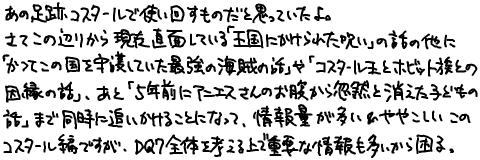 あの足跡コスタールで使い回すものだと思っていたよ。
さてこの辺りから現在直面している「王国にかけられた呪い」の話の他に
「かつてこの国を守護していた最強の海賊の話」や「コスタール王とホビット族との
因縁の話」、あと「5年前にアニエスさんのお腹から忽然と消えた子どもの
話」まで同時に追いかけることになって、情報量が多いわややこしいこの
コスタール編ですが、DQ7全体を考える上で重要な情報も多いから困る。